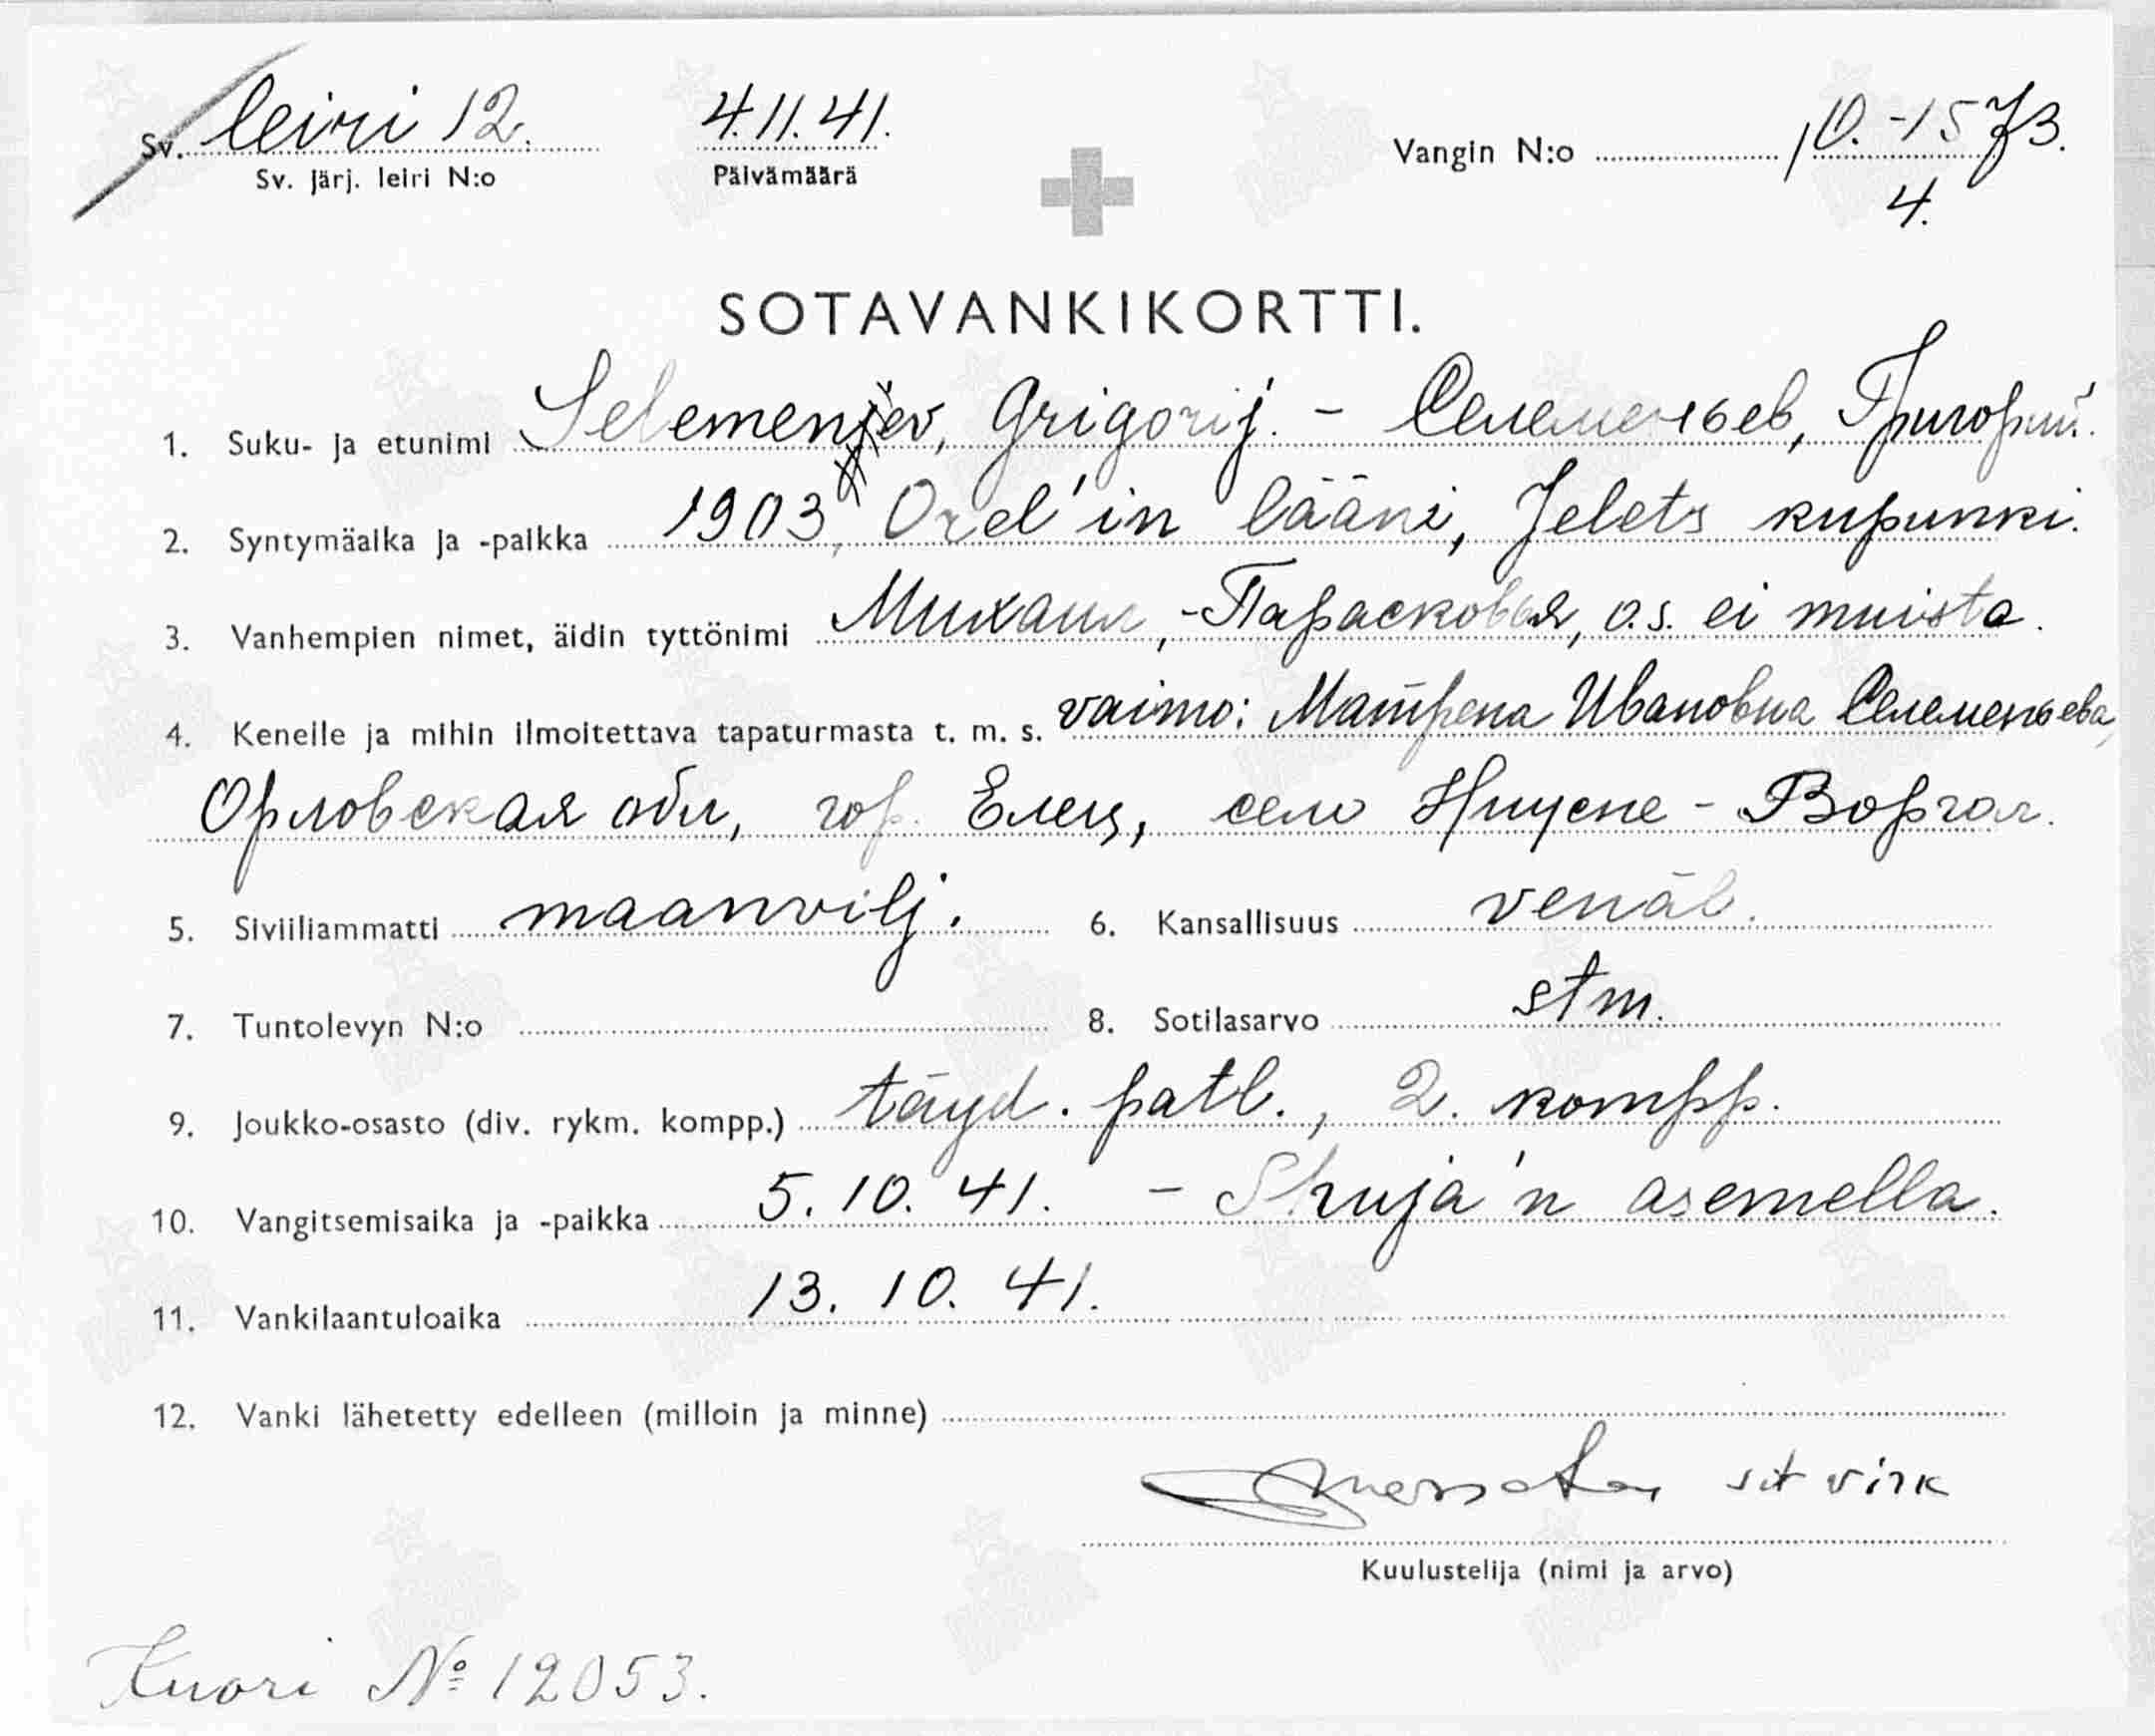 Sv. leiri 12. 4.11.41. Vangin N:o 10.-1573.
Sv. järj. leiri N:o Päivämäärä 4.
SOTAVANKIKORTTI.
1. Suku- ja etunimi Selemenjev, Grigorij. - Селеменьев, Григорий.
2. Syntymäaika ja -paikka 1903, Orel'in lääni, Jelets kupunki.
3. Vanhempien nimet, äidin tyttönimi Михаил, - Парасковья, o.s. ei muista.
4. Kenelle ja mihin ilmoitettava tapaturmasta t. m. s. vaimo: Матрена Ивановна Селеменьева,
Орловская обл, гор. Елец, село Ницене - Воргол.
5. Siviiliammatti maanvilj. 6. Kansallisuus venäl.
7. Tuntolevyn N:o 8. Sotilasarvo stm.
9. Joukko-osasto (div. rykm. kompp.) täyd. patl., 2. kompp.
10. Vangitsemisaika ja -paikka 5.10.41. - Shuja'n asemella.
11. Vankilaantuloaika 13. 10. 41.
12. Vanki lähetetty edelleen (milloin ja minne)
sot virk
Kuulustelija (nimi ja arvo)
Kuori № 12053.